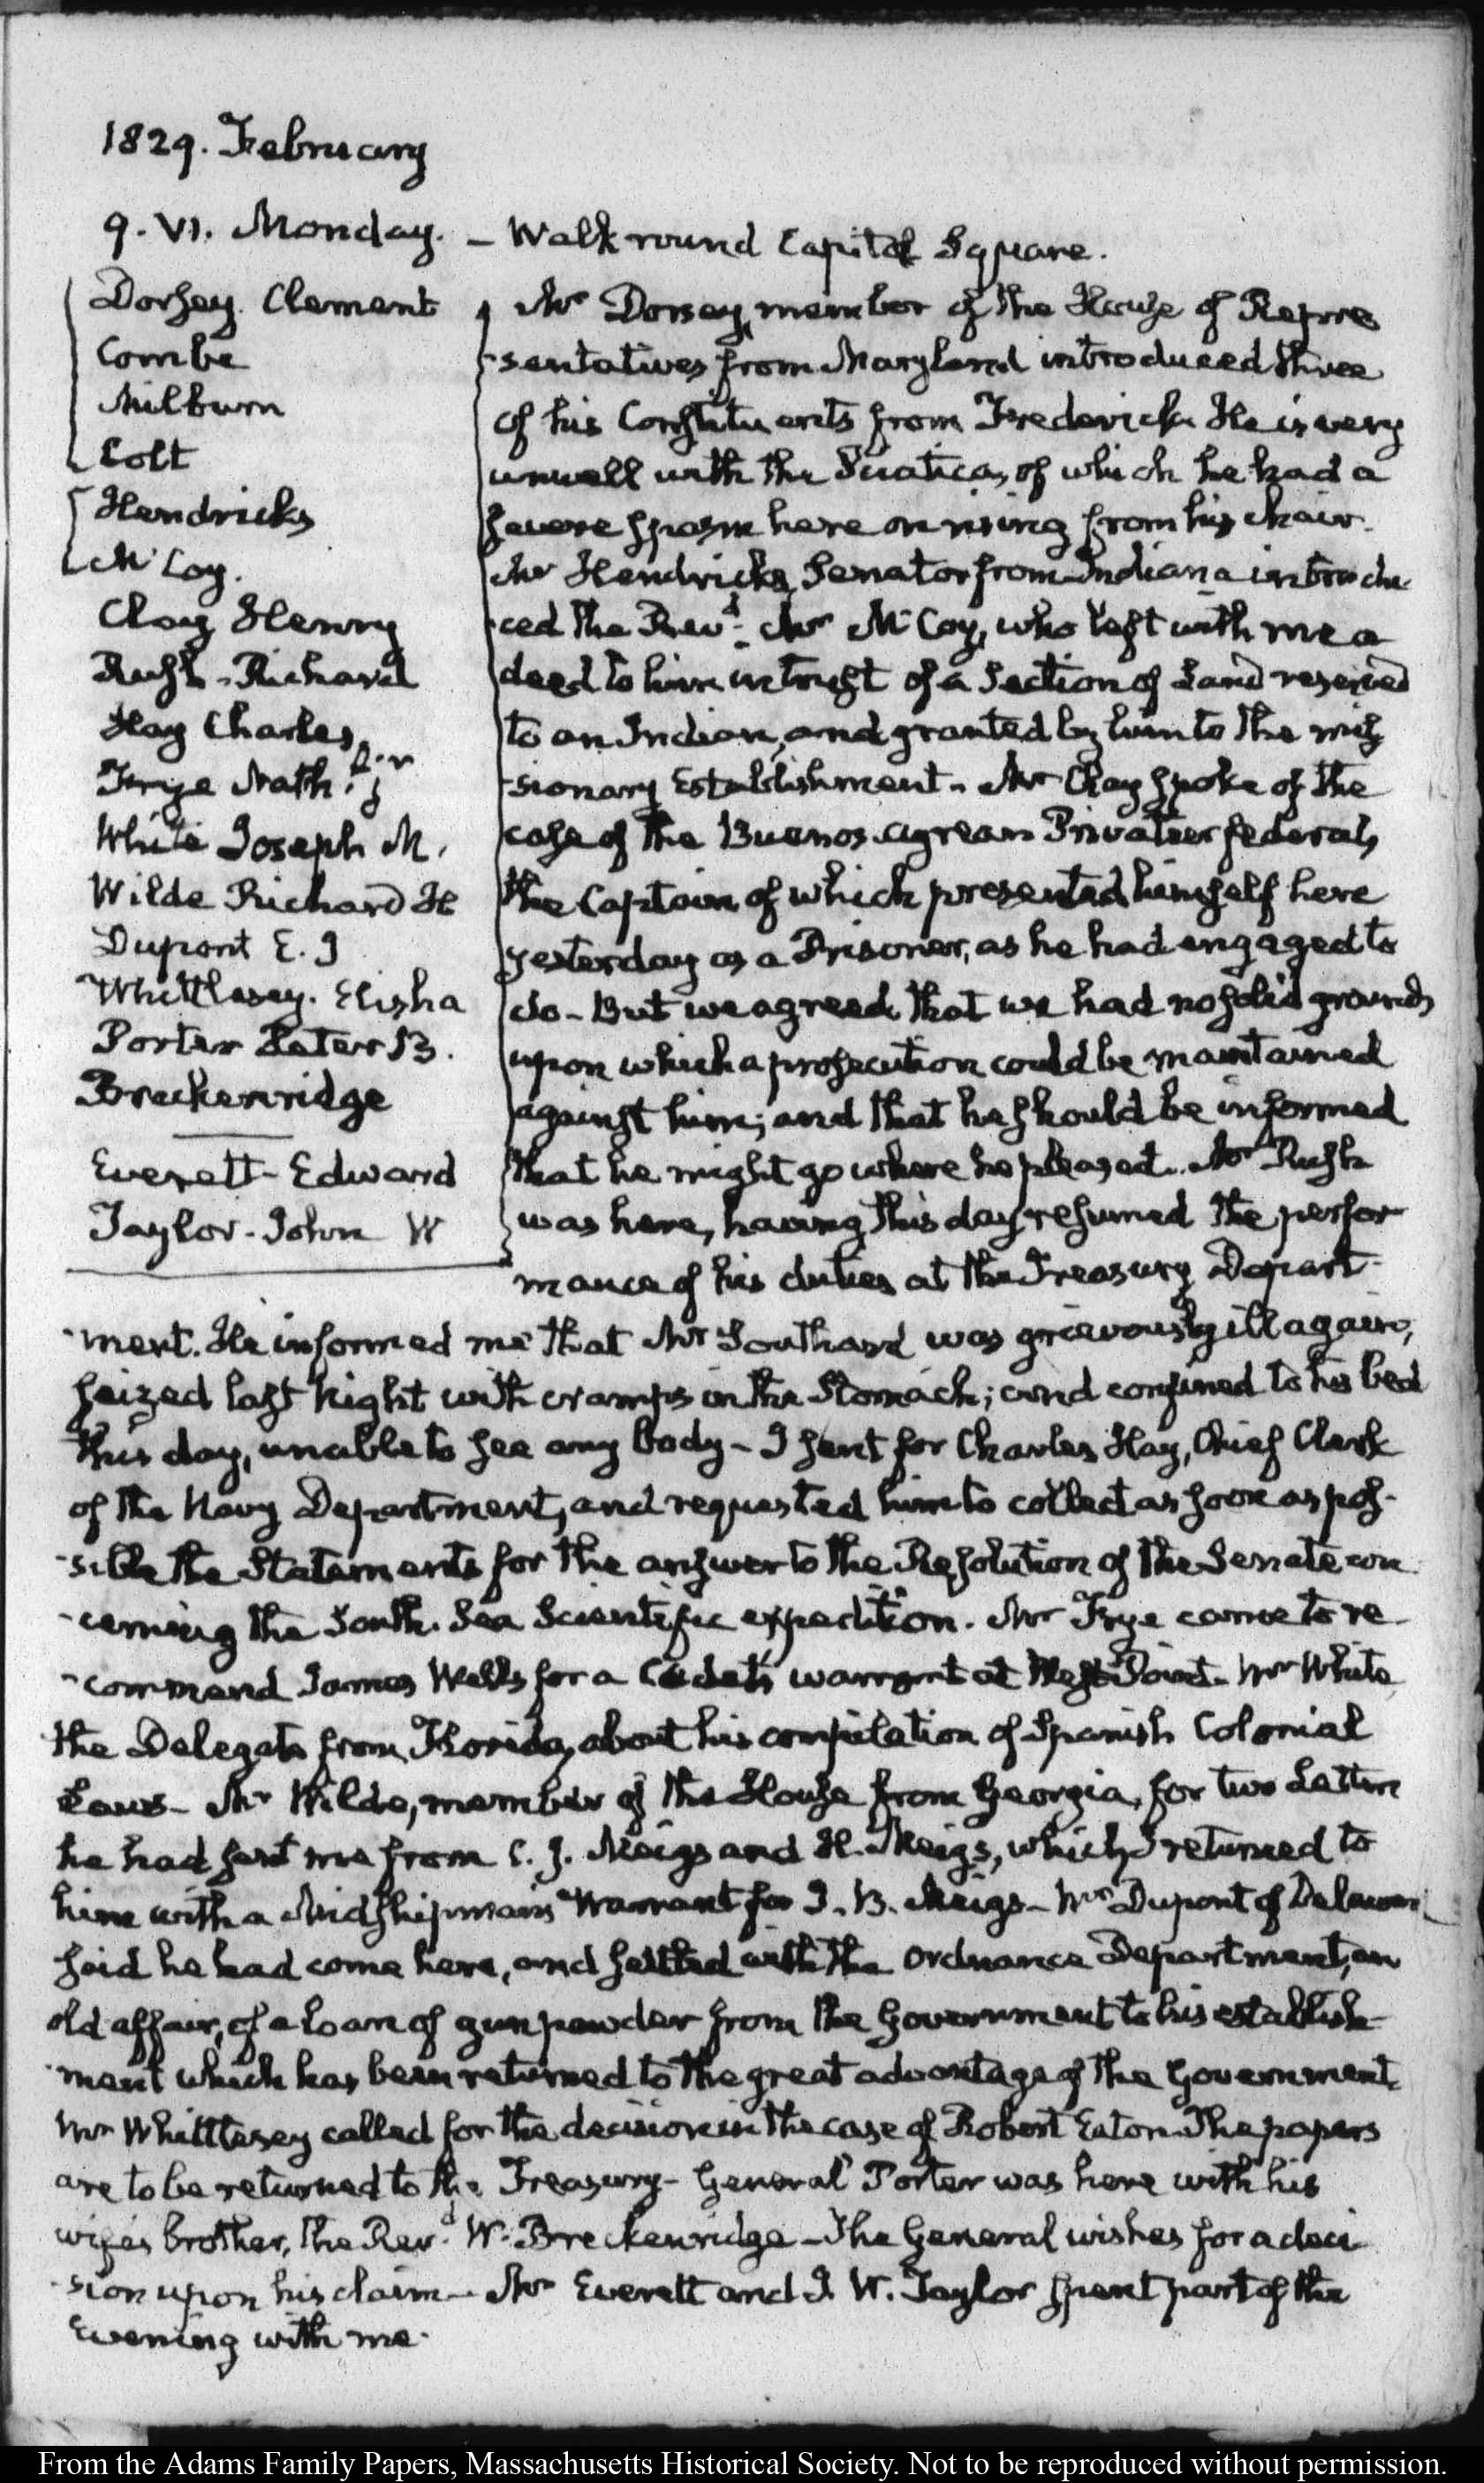 1829. February
9. VI. Monday. – Walk round Capitol Square.
Dorsey. Clement
Combe
Milburn
Colt
Hendricks
McCoy.
Clay Henry
Rush – Richard
Hay Charles
Frye Nath.l jr
White Joseph M.
Wilde Richard H
Dupont E. I
Whittlesey. Elisha
Porter Peter B.
Breckenridge
Everett – Edward
Taylor – John W
Mr Dorsey, member of the House of Repre
-sentatives from Maryland introduced three
of his Constituents from Frederick. He is very
unwell with the Sciatica, of which he had a
severe spasm here on rising from his chair.
Mr Hendricks, Senator from Indiana introdu
-ced the Revd. Mr McCoy, who left with me a
deed to him in trust of a Section of Land reserved
to an Indian, and granted by him to the mis
-sionary Establishment. Mr Clay spoke of the
case of the Buenos ayrean Privateer federal,
the Captain of which presented himself here
yesterday as a Prisoner, as he had engaged to
do – But we agreed that we had no solid grounds
upon which a prosecution could be maintained
against him; and that he should be informed
that he might go where he pleased. Mr Rush
was here, having this day resumed the perfor
mance of his duties at the Treasury Depart-
-ment. He informed me that Mr Southard was grievously ill again,
seized last Night with cramps in the Stomach; and confined to his bed
this day, unable to see any body – I sent for Charles Hay, Chief Clerk
of the Navy Department, and requested him to collect as soon as pos-
-sible the Statements for the answer to the Resolution of the Senate con
-cerning the South Sea Scientific expedition. Mr Frye came to re
-commend James Wells for a Cadet's warrant at West Point. Mr White
the Delegate from Florida, about his compilation of Spanish Colonial
Laws – Mr Wilde, member of the House from Georgia, for two Letters
he had sent me from C. J. Meigs and H. Meigs, which I returned to
him with a Midshipman's Warrant for J. B. Meigs – Mr Dupont of Delaware
said he had come here, and settled with the Ordnance Department, an
old affair, of a loan of gunpowder from the Government to his establish-
-ment which has been returned to the great advantage of the Government.
Mr Whittlesey called for the decision in the case of Robert Eaton. The papers
are to be returned to the Treasury – General Porter was here with his
wife's brother, the Revd. W. Breckenridge – The General wishes for a deci
-sion upon his claim – Mr Everett and J. W. Taylor spent part of the
Evening with me.
From the Adams Family Papers, Massachusetts Historical Society. Not to be reproduced without permission.